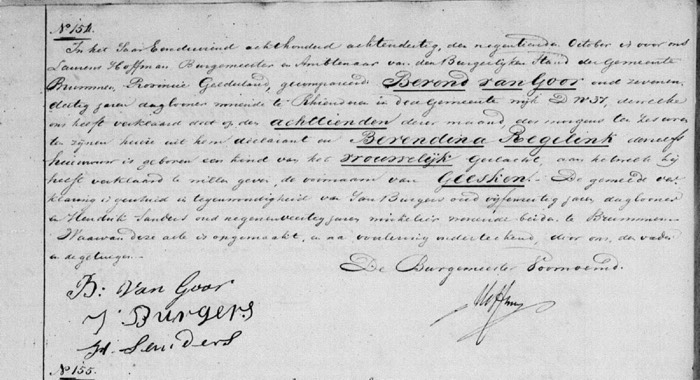 No 154.
In het Jaar Eenduizend achthonderd achtendertig, den negentienden October is voor ons
Laurens Hoffman Burgemeester en Ambtenaar van den Burgerlyken Stand der Gemeente
Brummen, Provincie Gelderland, gecompareerd Berend van Goor oud zevenen
dertig jaren daglooner wonende te Rhienderen in deze Gemeente wijk D No 37, dewelke
ons heeft verklaard dat op den achttienden dezer maand, des morgens ten zes uren
ten zijnen huize uit hem declarant en Berendina Regelink deszelfs
huisvrouw is geboren een kind van het vrouwelijk Geslacht, aan hetwelk hij
heeft verklaard te willen geven de voornaam van Geesken. De gemelde ver
klaring is geschied in tegenwoordigheid van Jan Burgers oud vijfenveertig jaren daglooner
en Hendrik Sanders oud negenenveertig jaren winkelier wonende beiden te Brummen
Waarvan deze acte is opgemaakt, en na voorlezing onderteekend, door ons, den vader
en de getuigen.
De Burgemeester Voornoemd.
B: Van Goor
J Burgers
H. Senders
LHoffman
No 155.